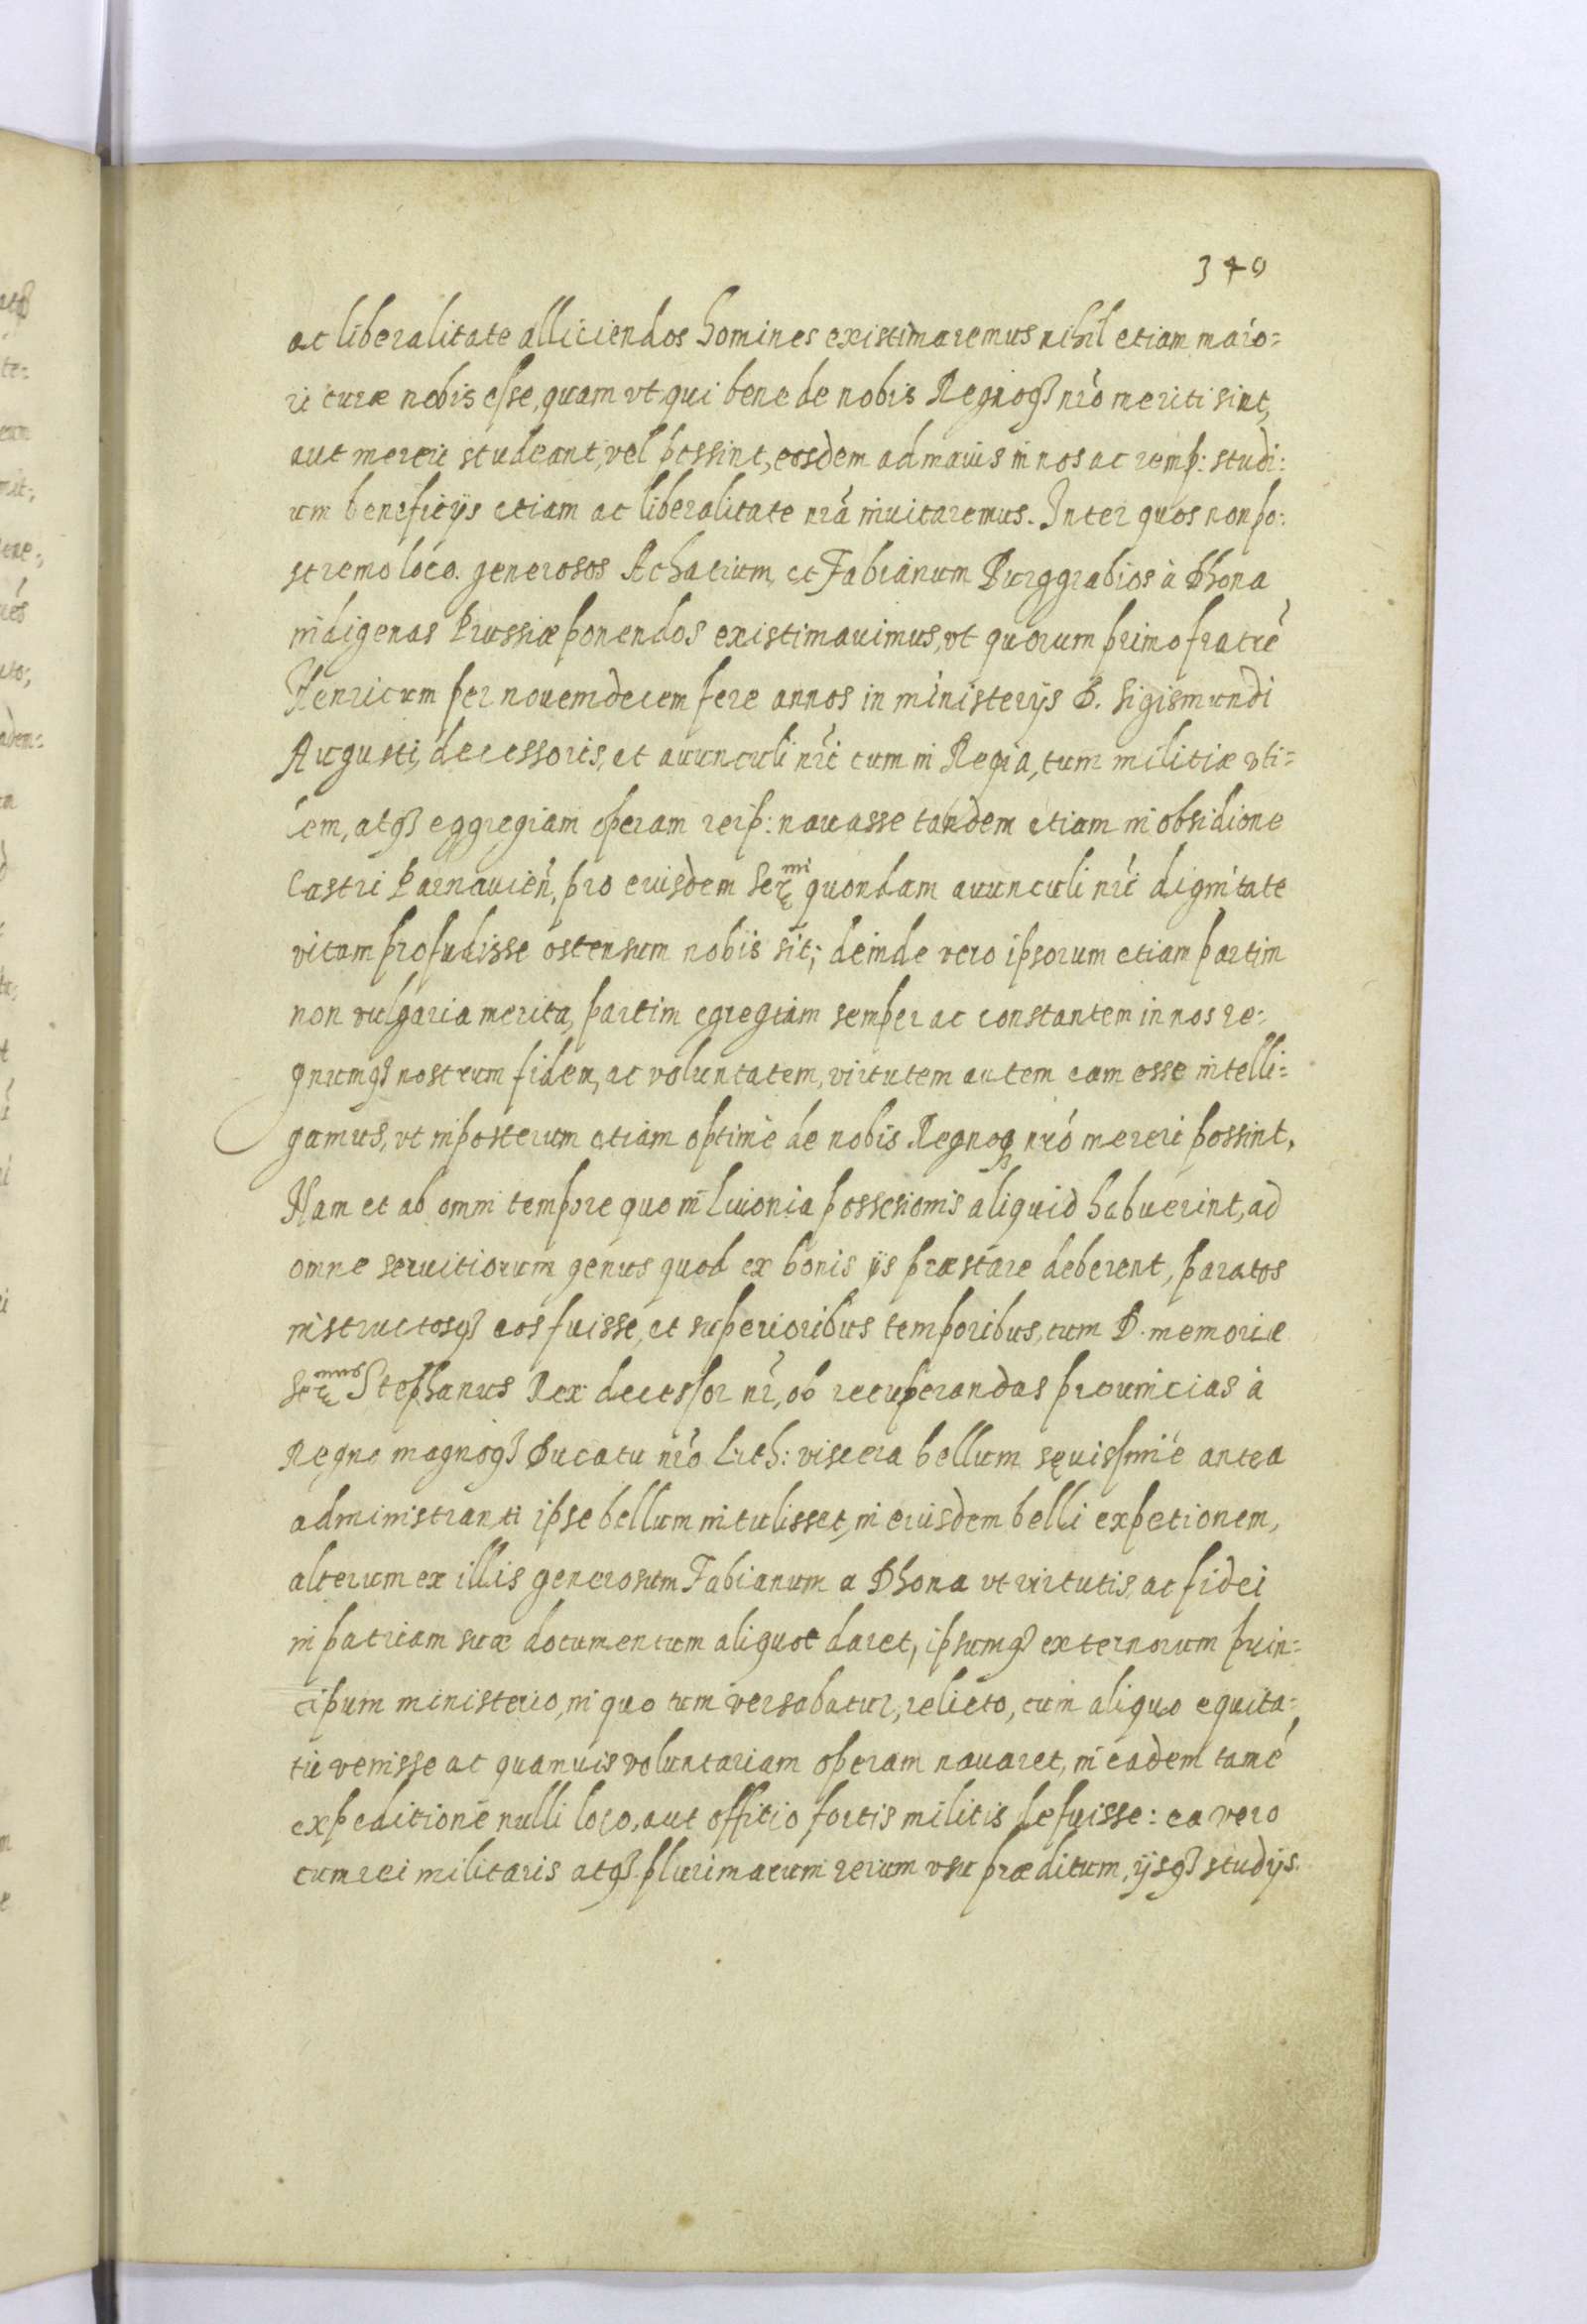 340
ac liberalitate alliciendos homines existimaremus nihil etiam maio=
ri curæ nobis esse, quam vt qui bene de nobis Regnoqꝫ nr̃o meriti sint,
aut mereri studeant, vel possint, eosdem ad mauis in nos ac remp: studi:
um beneficijs etiam ac liberalitate nr̃a inuitaremus. Inter quos non po:
stremo loco. generosos Achatium, et Fabianum Burggrabios à Dhona
indigenas Prussiæ ponendos existimauimus, vt quorum primo fratrẽ
Henricum per nouemdecem fere annos in ministerijs D. Sigismundi
Augusti, decessoris, et auunculi nr̃i cum in Regia, tum militiæ vti=
lem, atqꝫ eggregiam operam reip: nauasse tandem etiam in obsidione
Castri Parnauien̄, pro eiusdem Ser̃mi quondam auunculi nr̃i dignitate
vitam profudisse ostensum nobis sit; deinde vero ipsorum etiam partim
non vulgaria merita, partim egregiam semper ac constantem in nos re:
gnumqꝫ nostrum fidem, ac voluntatem, virtutem autem eam esse intelli=
gamus, vt inposterum etiam optime de nobis Regnoqꝫ nr̃o mereri possint.
Nam et ab omni tempore quo in Liuonia possesionis aliquid habuerint, ad
omne seruitiorum genus quod ex bonis ijs præstare deberent, paratos
instructosqꝫ eos fuisse, et superioribus temporibus, cum D. memoriæ
Ser̃mus Stephanus Rex decessor nr̃, ob recuperandas prouincias à
Regno magnoqꝫ Ducatu nr̃o Lith: viscera bellum sęuissime antea
administranti ipse bellum intulisset, in eiusdem belli expetionem,
alterum ex illis generosum Fabianum a Dhona vt virtutis, ac fidei
in patriam suæ documentum aliquot daret, ipsumqꝫ externorum prin=
cipum ministerio, in quo tum versabatur, relicto, cum aliquo equita=
tu venisse ac quamuis voluntariam operam nauaret, in eadem tamẽ
expeditione nulli loco, aut offitio fortis militis defuisse: ea vero
cum rei militaris atqꝫ plurimarum rerum vsu præditum, ijsqꝫ studijs